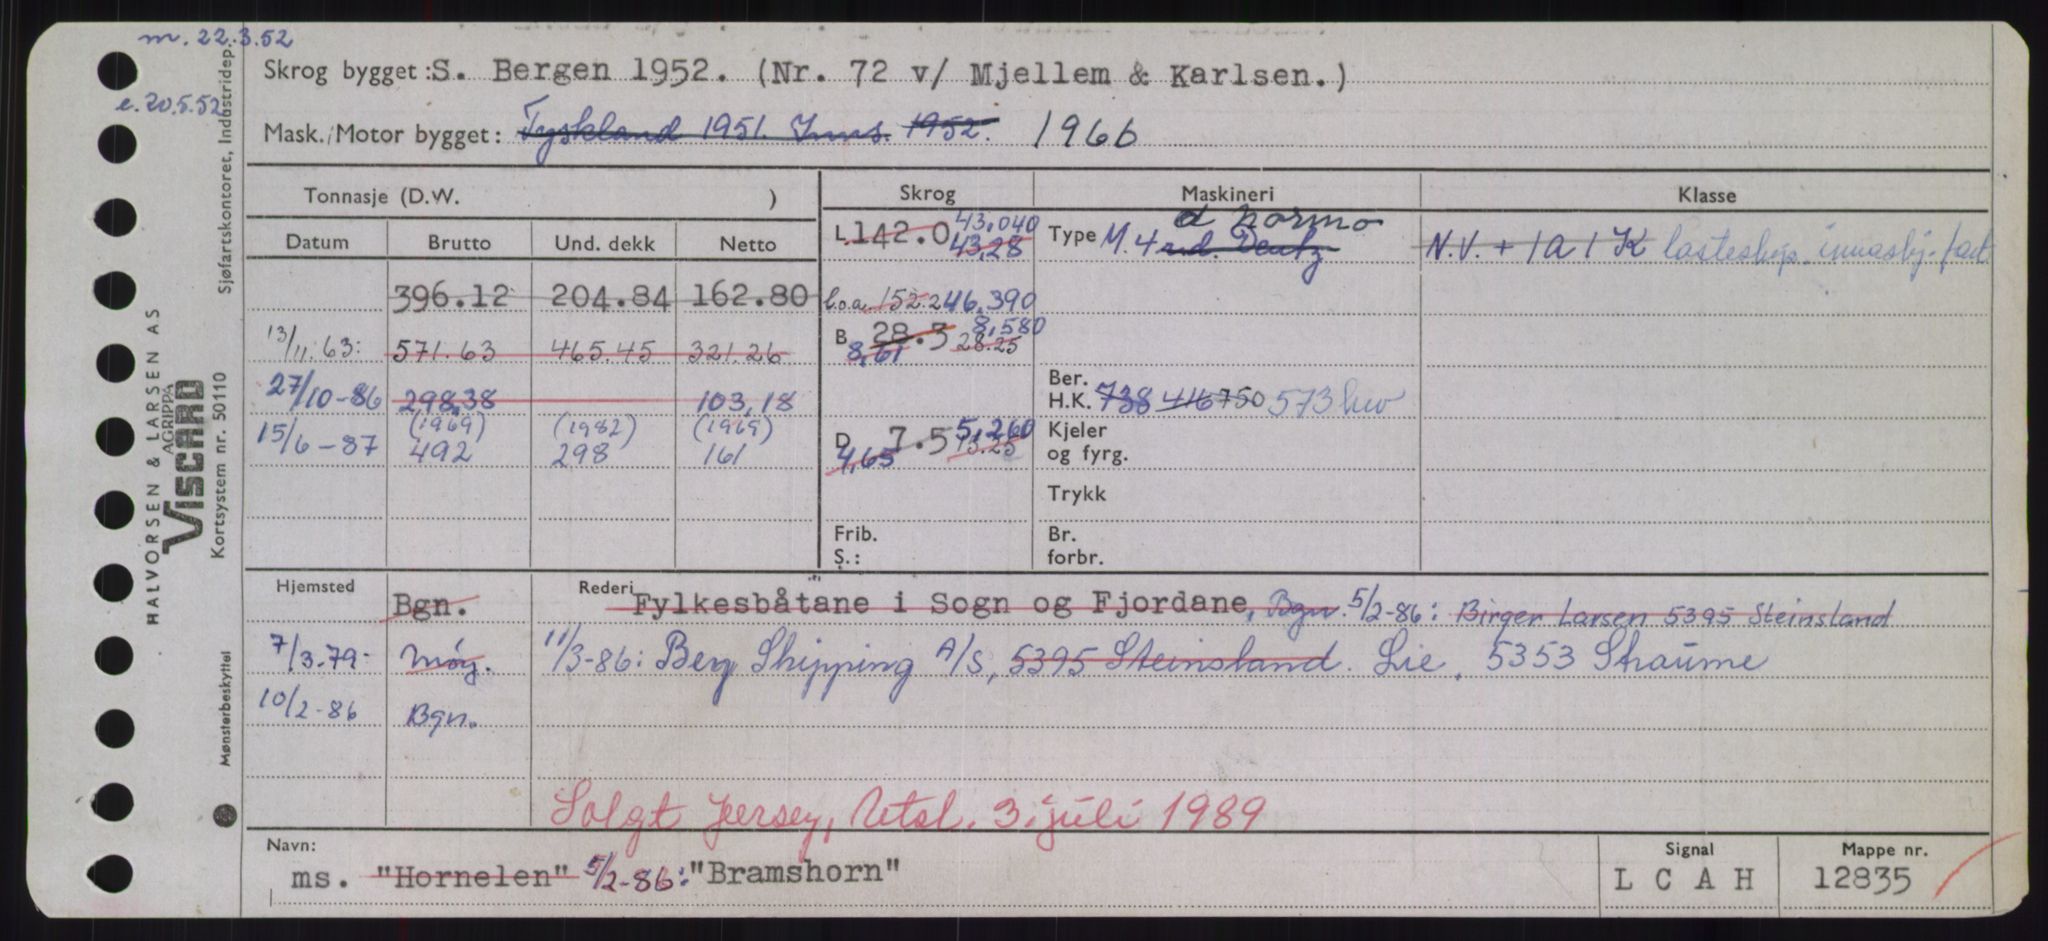 m. 22.3.52
e. 20.5.52
Skrog bygget: S. Bergen 1952. (Nr. 72 v/ Mjellem & Karlsen.)
Mask./Motor bygget: Tyskland 1951. Inns. 1952. 1966
Tonnasje (D.W. )
Skrog
Maskineri
Klasse
Datum
Brutto
Und. dekk
Netto
L 142.0 43,040
43,28
Type M. 4 d Normo
Deutz
N.V. + 1 A 1 K lasteskip.
396.12 204.84 162.80
l.o.a. 152.2 46,390
13/11.63: 571.63 465.45 321.26
B 28.3 8,580
8,61 28.25
27/10-86 298,38 103,18
Ber.
H.K. 738 416 750 573 kw
15/6-87 (1969) (1982) (1969)
492 298 161
D 7.5 5,260
4,65 13.25
Kjeler
og fyrg.
Trykk
Frib.
S.:
Br.
forbr.
Hjemsted
Bgn.
Rederi
Fylkesbåtane i Sogn og Fjordane, Bgn. 5/2-86: Birger Larsen 5395 Steinsland
7/3-79- Møy.
11/3-86: Berg Shipping A/S, 5395 Steinsland. Lie, 5353 Straume
10/2-86 Bgn.
Solgt Jersey, Utsl. 3. juli 1989
Navn:
ms. "Hornelen" 5/2-86: "Bramshorn"
Signal
L C A H
Mappe nr.
12835
HALVORSEN & LARSEN AS
AGRIPPA
VISCARD
Kortsystem nr. 50110
Sjøfartskontoret, Industridep.
Mønsterbeskyttet